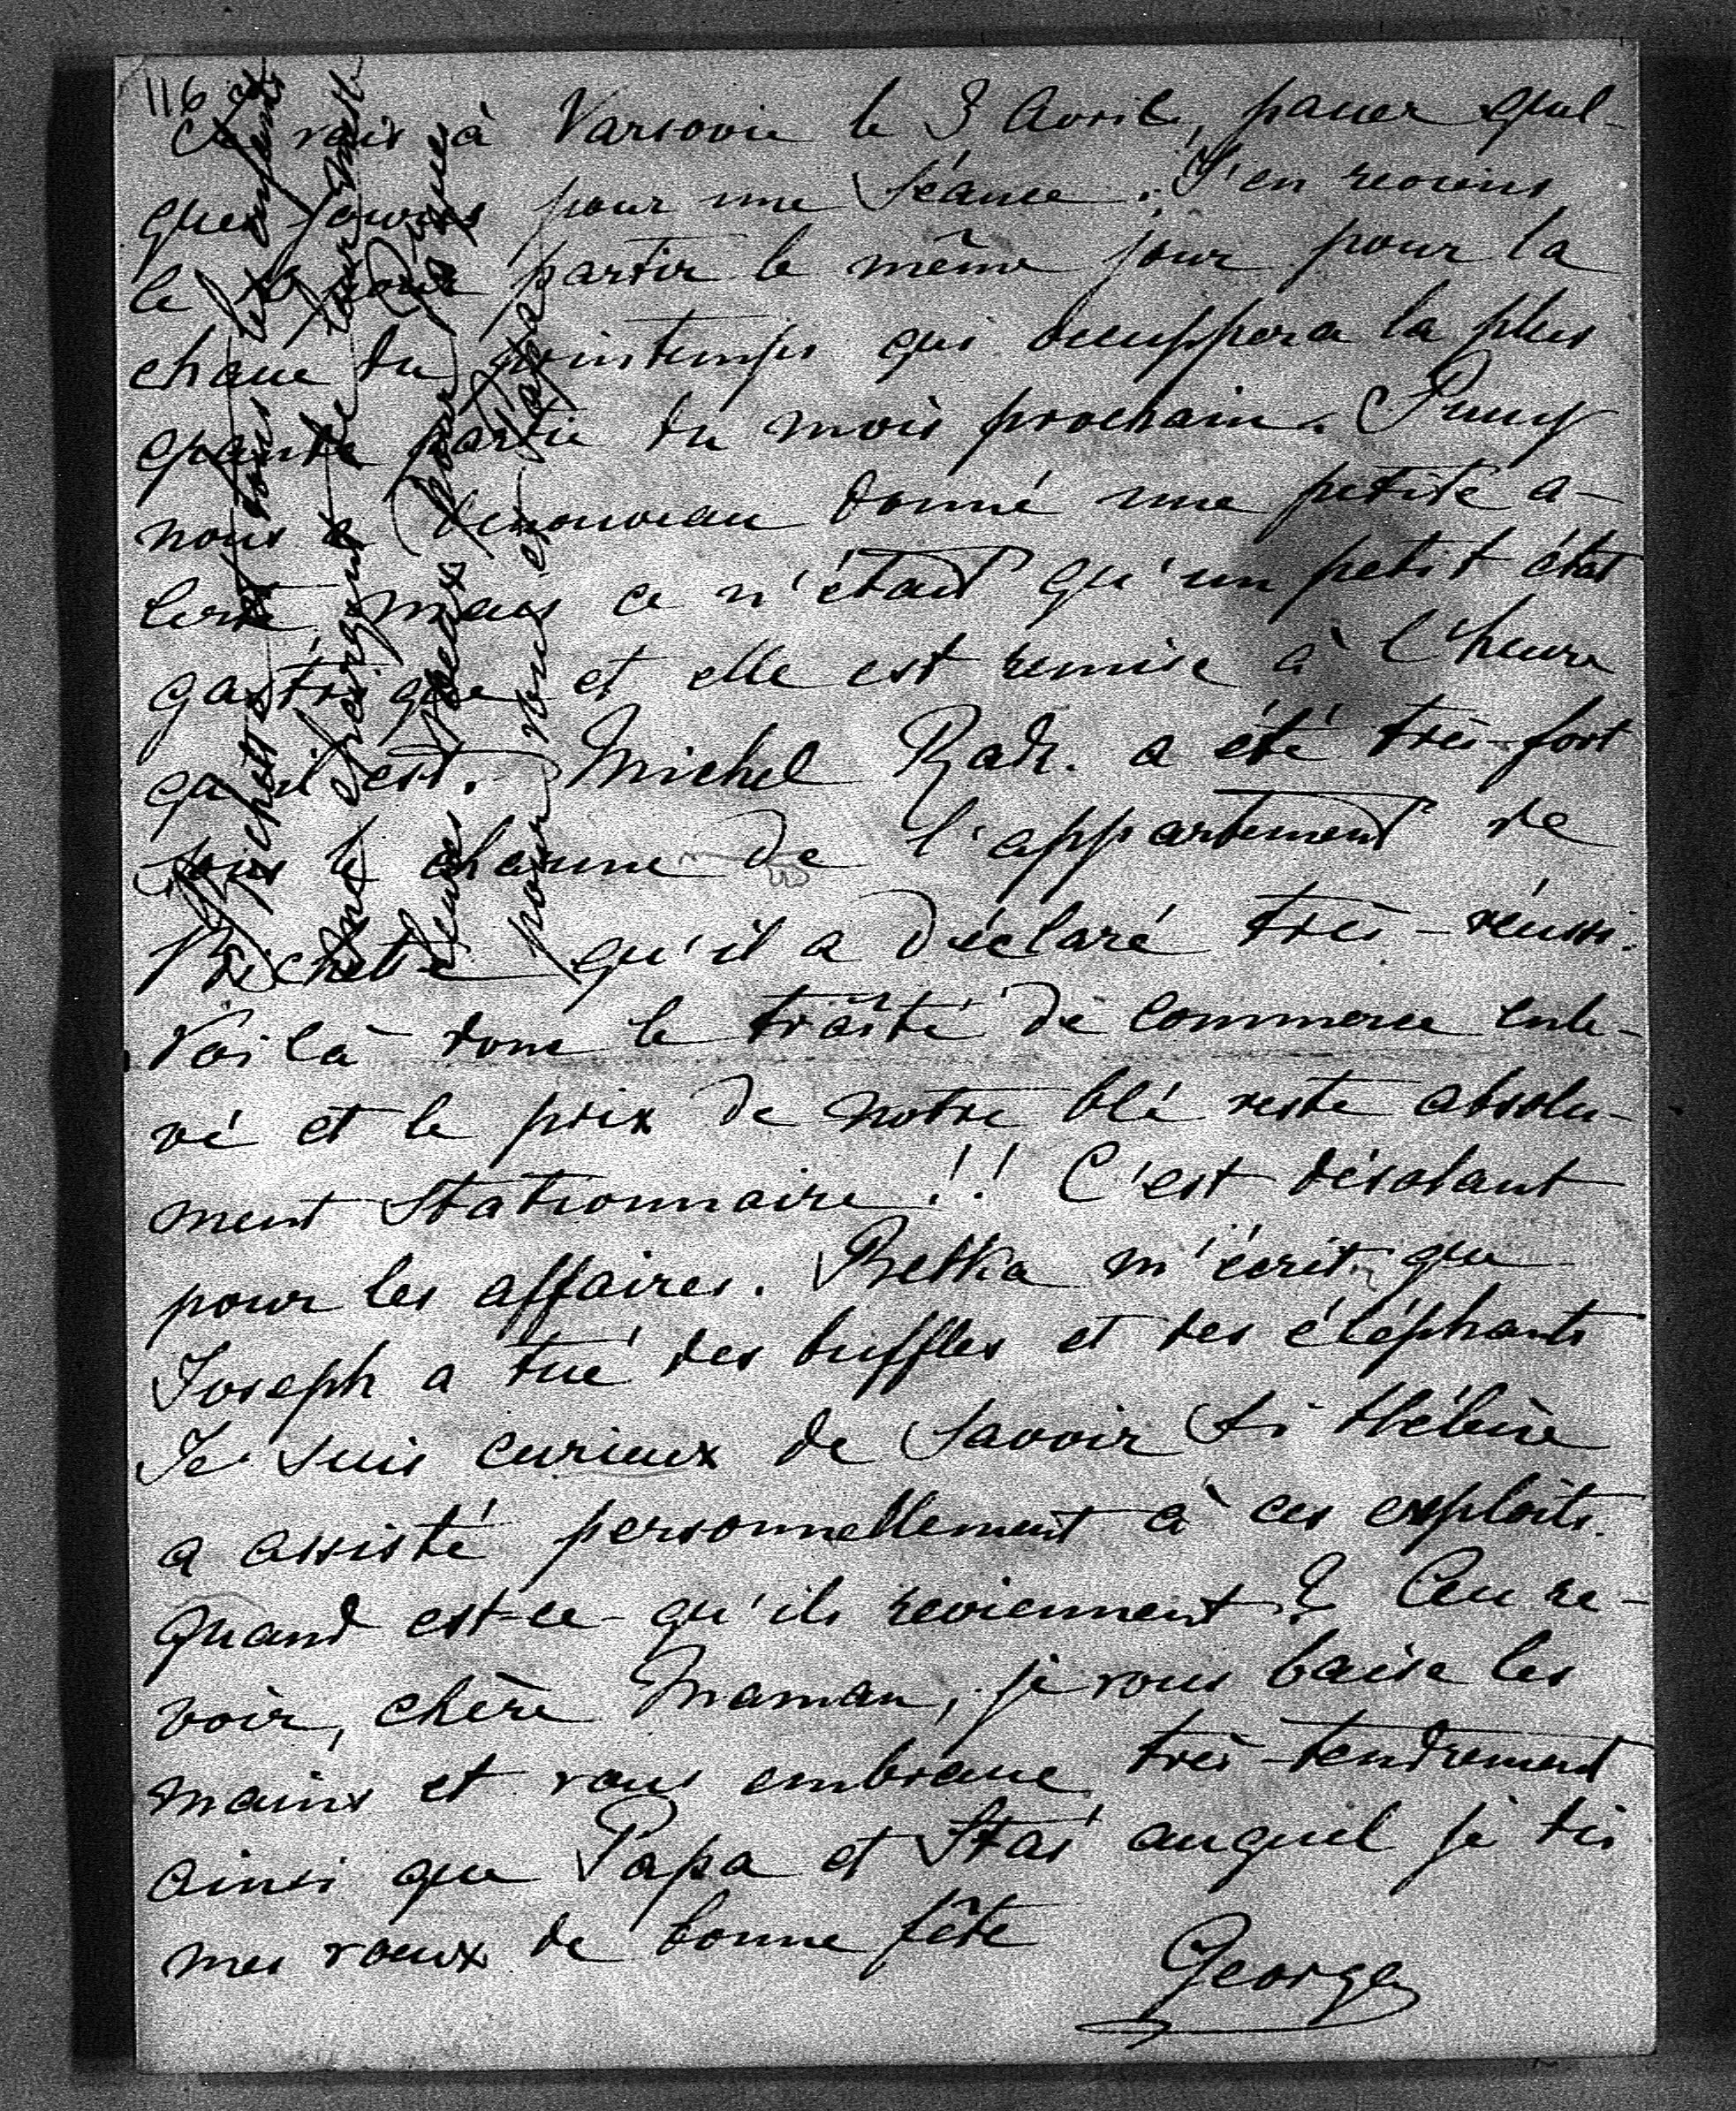 116
Je vais à Varsovie le 3 Avril, passer quel-
ques jours pour une séance. J'en reviens
le pour partir le même jour pour la
chasse du printemps qui occuppera la plus
grande partie du mois prochain. Pussy
nous a denouveau donné une petite a-
lerte, mais ce n'était qu'un petit état
gastrique et elle est remise à l'heure
qu'il est. Michel Radz. a été très-fort
sous le charme de l'appartement de
Bichette qu'il a déclaré très-réussi.
Voilà donc le traité de commerce enle-
vé et le prix de notre blé reste absolu-
ment stationnaire!! C'est désolant
pour les affaires. Betka m'écrit que
Joseph a tué des buffles et des éléphants
Je suis curieux de savoir si Hélène
a assisté personnellement à ces exploits.
Quand est-ce-qu'ils reviennent? Au re-
voir, chère Maman, je vous baise les
mains et vous embrasse très-tendrement
ainsi que Papa et Stas' auquel je dis
mes voeux de bonne fête
Georges
Bichette et tous les enfants
me chargent de leur part
deux pour vous
pour vous et Papa